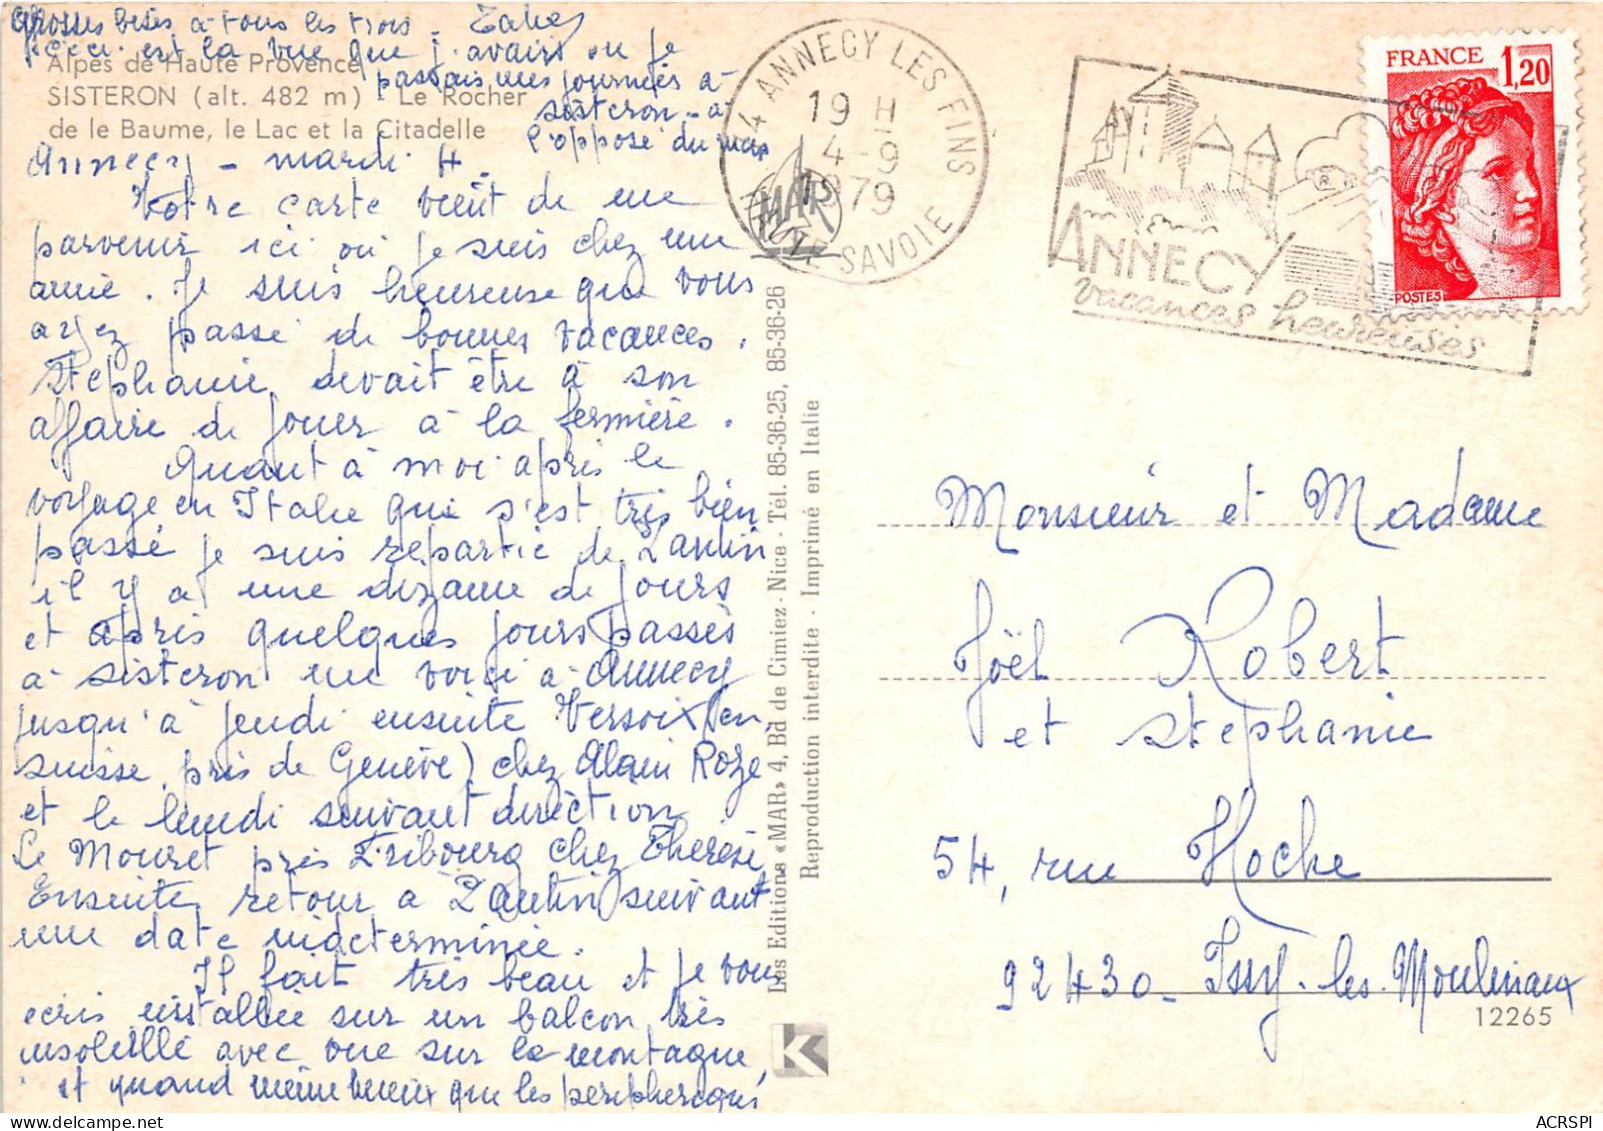 Grosses bises à tous les trois.
Ceci est la vue que j'avais ou je
passais mes journées à
Sisteron - à
l'opposé du mas
Alpes de Haute Provence
SISTERON (alt. 482 m) - Le Rocher
de le Baume, le Lac et la Citadelle
Annecy - mardi 4.
Votre carte vient de me
parvenir ici où je suis chez une
amie. Je suis heureuse que vous
ayez passé de bonnes vacances.
Stephanie devait être à son
affaire de jouer à la fermière.
Quant à moi après le
voyage en Italie qui s'est très bien
passé je suis repartie de Pantin
il y a une dizaine de jours
et après quelques jours passés
à Sisteron me voici à Annecy
jusqu'à jeudi ensuite Versoix (en
Suisse près de Genève) chez Alain Roze
et le lundi suivant direction
Le Mouret près Fribourg chez Thérèse
Ensuite retour à Pantin suivant
une date indéterminée.
Il fait très beau et je vous
écris installée sur un balcon très
ensoleillé avec vue sur la montagne,
et quand même mieux que les périphériques
Les Editions «MAR» 4, Bd de Cimiez - Nice - Tél. 85-36-25, 85-36-26
Reproduction interdite - Imprimé en Italie
MAR
K
74 ANNECY LES FINS
19 H
4-9
1979
HAUTE SAVOIE
ANNECY
vacances heureuses
FRANCE
1,20
POSTES
Monsieur et Madame
Joël Robert
et Stephanie
54, rue Hoche
92430 - Issy-les-Moulineaux
12265
ACRSPI